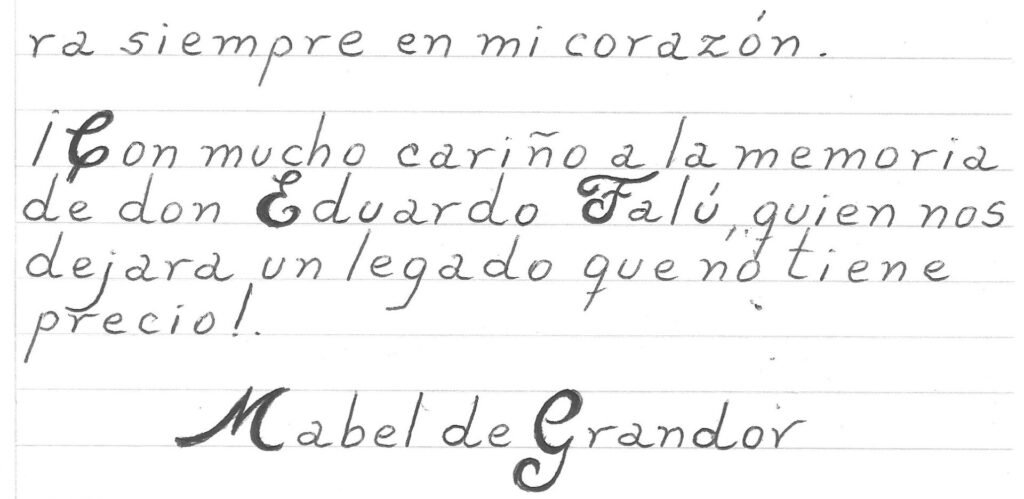 ra siempre en mi corazón.
¡Con mucho cariño a la memoria
de don Eduardo Falú, quien nos
dejara un legado que no tiene
precio!.
Mabel de Grandor